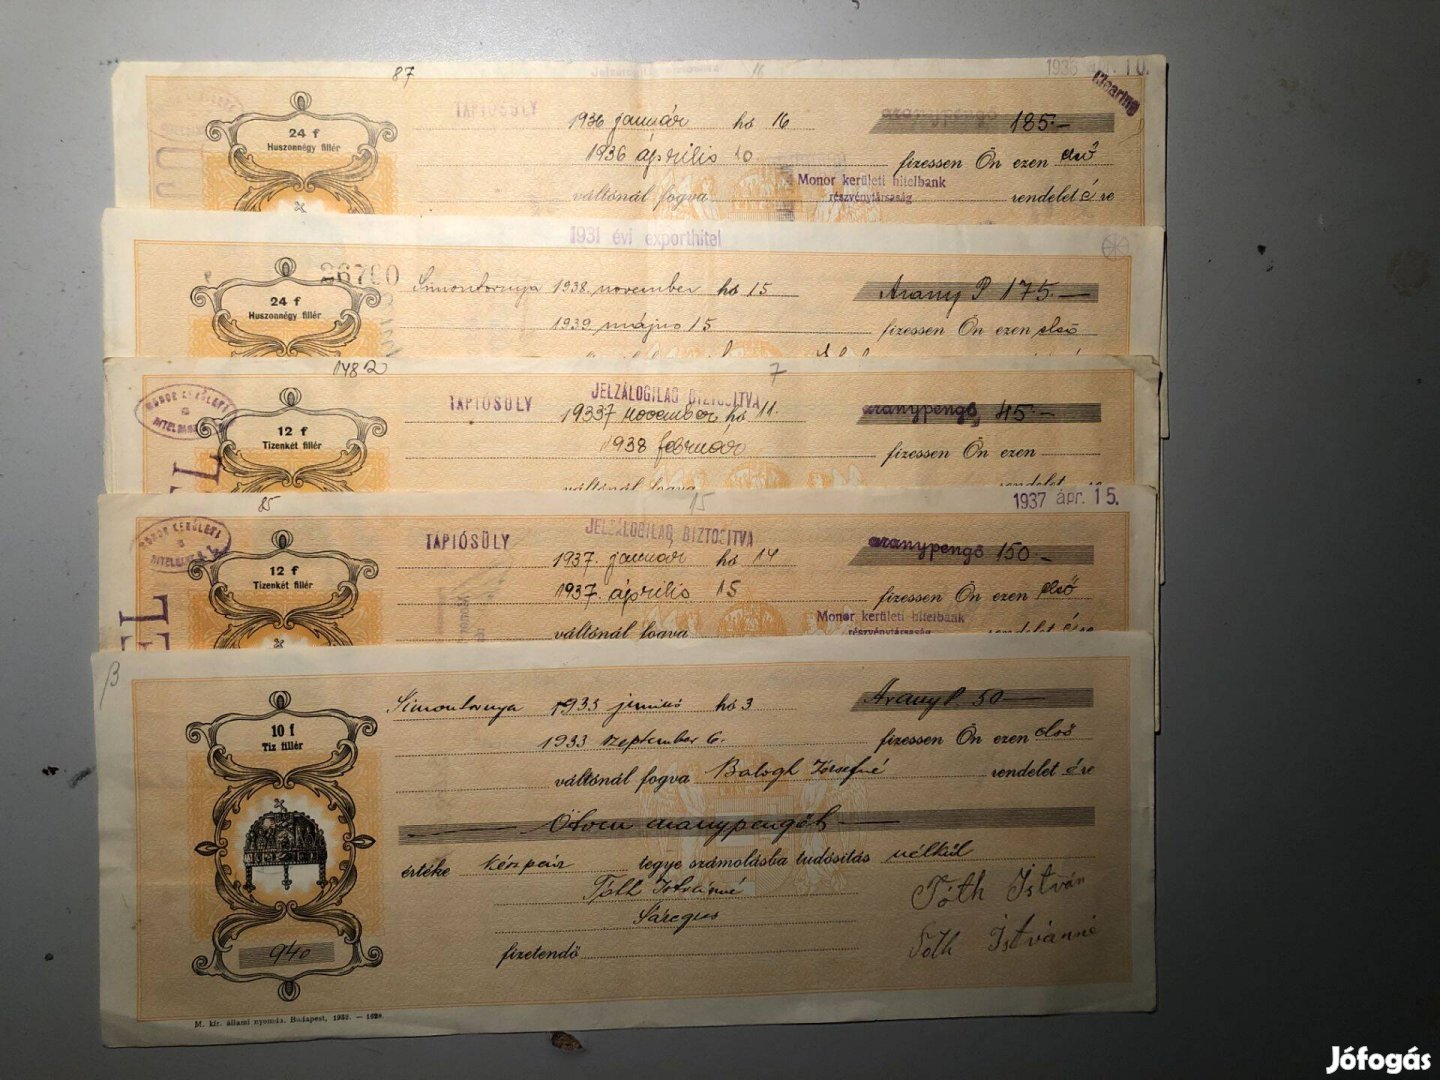 87
1936 ápr. 10.
Clearing
24 f
Huszonnégy fillér
TÁPIÓSÜLY
1936 január hó 16
aranypengő 185.—
1936 április 10
fizessen Ön ezen első
Monor kerületi hitelbank
részvénytársaság
váltónál fogva
rendeletére
1931 évi exporthitel
26700
24 f
Huszonnégy fillér
Simontornya 1938. november hó 15
Arany P 175.—
1939. május 15
fizessen Ön ezen első
1482
7
MONOR KERÜLETI
HITELBANK
12 f
Tizenkét fillér
TÁPIÓSÜLY
JELZÁLOGILAG BIZTOSITVA
1937 november hó 11.
aranypengő 45.—
1938 február
fizessen Ön ezen
váltónál fogva
rendelet ére
85
15
1937 ápr. 15.
MONOR KERÜLETI
HITELBANK R. T.
12 f
Tizenkét fillér
TÁPIÓSÜLY
JELZÁLOGILAG BIZTOSITVA
1937. január hó 14
aranypengő 150.—
1937. április 15
fizessen Ön ezen első
Monor kerületi hitelbank
részvénytársaság
váltónál fogva
rendelet ére
10 f
Tiz fillér
Simontornya 1933 junius hó 3
Arany P. 50 —
1933 szeptember 6.
fizessen Ön ezen első
váltónál fogva Balogh Józsefné rendelet ére
Ötven aranypengőt
értéke készpénz tegye számolásba tudósítás nélkül
Tóth Istvánné
Tóth István
fizetendő
Tóth Istvánné
940
M. kir. állami nyomda. Budapest, 1932. — 1628.
Jófogás